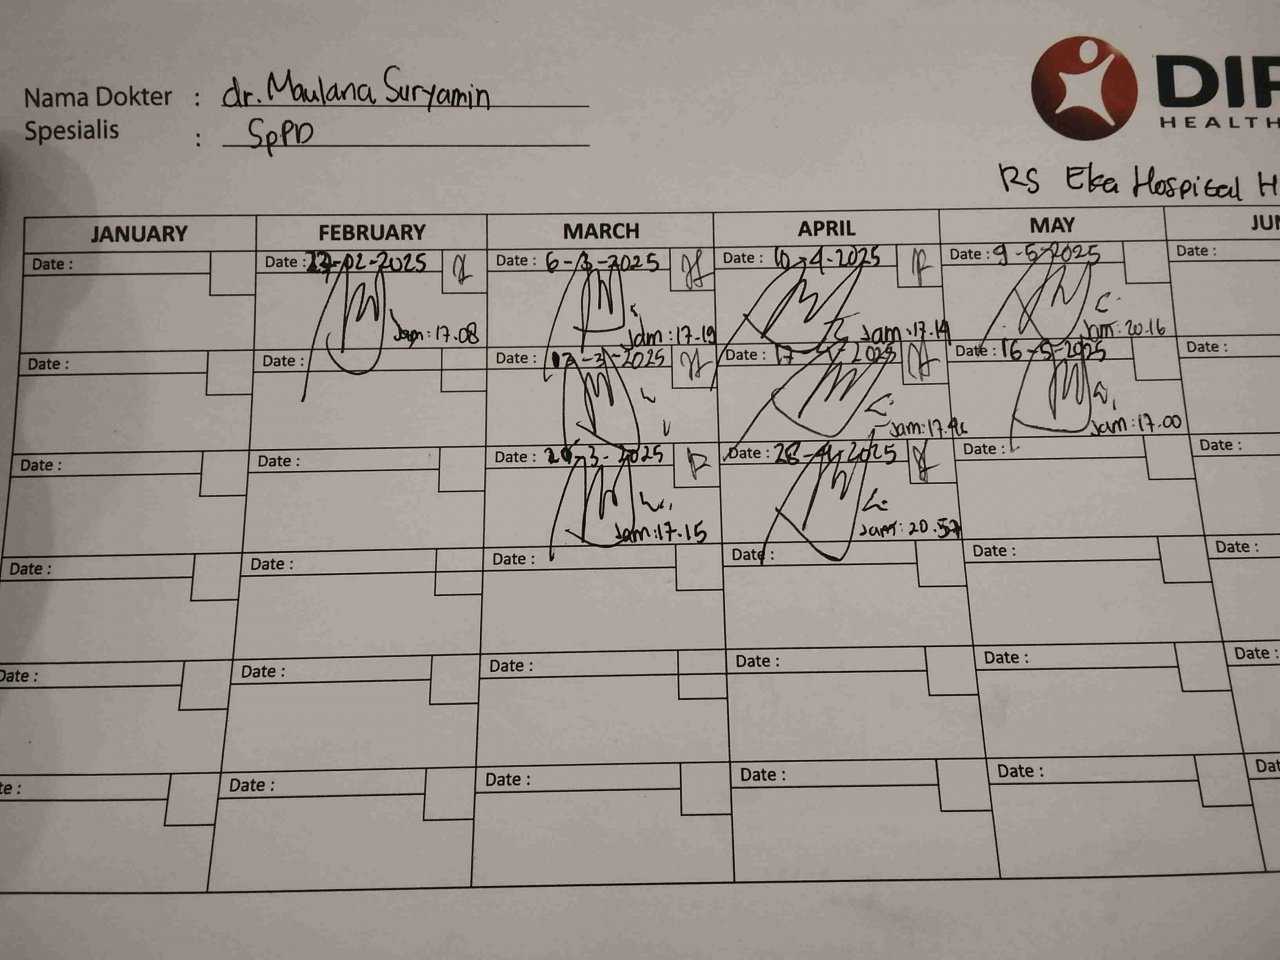 Nama Dokter : dr. Maulana Suryamin
Spesialis : SpPD
HEALTH
RS Eka Hospital H
JANUARY FEBRUARY MARCH APRIL MAY
Date : Date : -02-2025 Date : 6-3-2025 Date : 10-4-2025 Date : 9-5-2025 Date :
Jam: 17.08 Jam: 17.19 Jam: 17.19 Jam: 20.16
Date : Date : Date : -3-2025 Date : 17-4-2025 Date : 16-5-2025 Date :
Jam: 17. Jam: 17.00
Date : Date : Date : -3-2025 Date : 28-4-2025 Date : Date :
Jam: 17.15 Jam: 20.57
Date : Date : Date : Date : Date : Date :
Date : Date : Date : Date : Date : Date :
Date : Date : Date : Date :